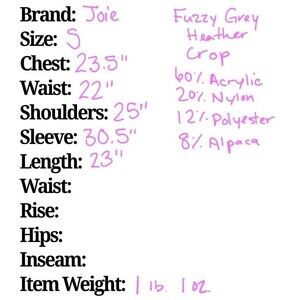 Brand: Joie
Size: S
Chest: 23.5"
Waist: 22"
Shoulders: 25"
Sleeve: 30.5"
Length: 23"
Waist:
Rise:
Hips:
Inseam:
Item Weight: 1 lb. 1 oz.
Fuzzy Grey
Heather
Crop
60% Acrylic
20% Nylon
12% Polyester
8% Alpaca